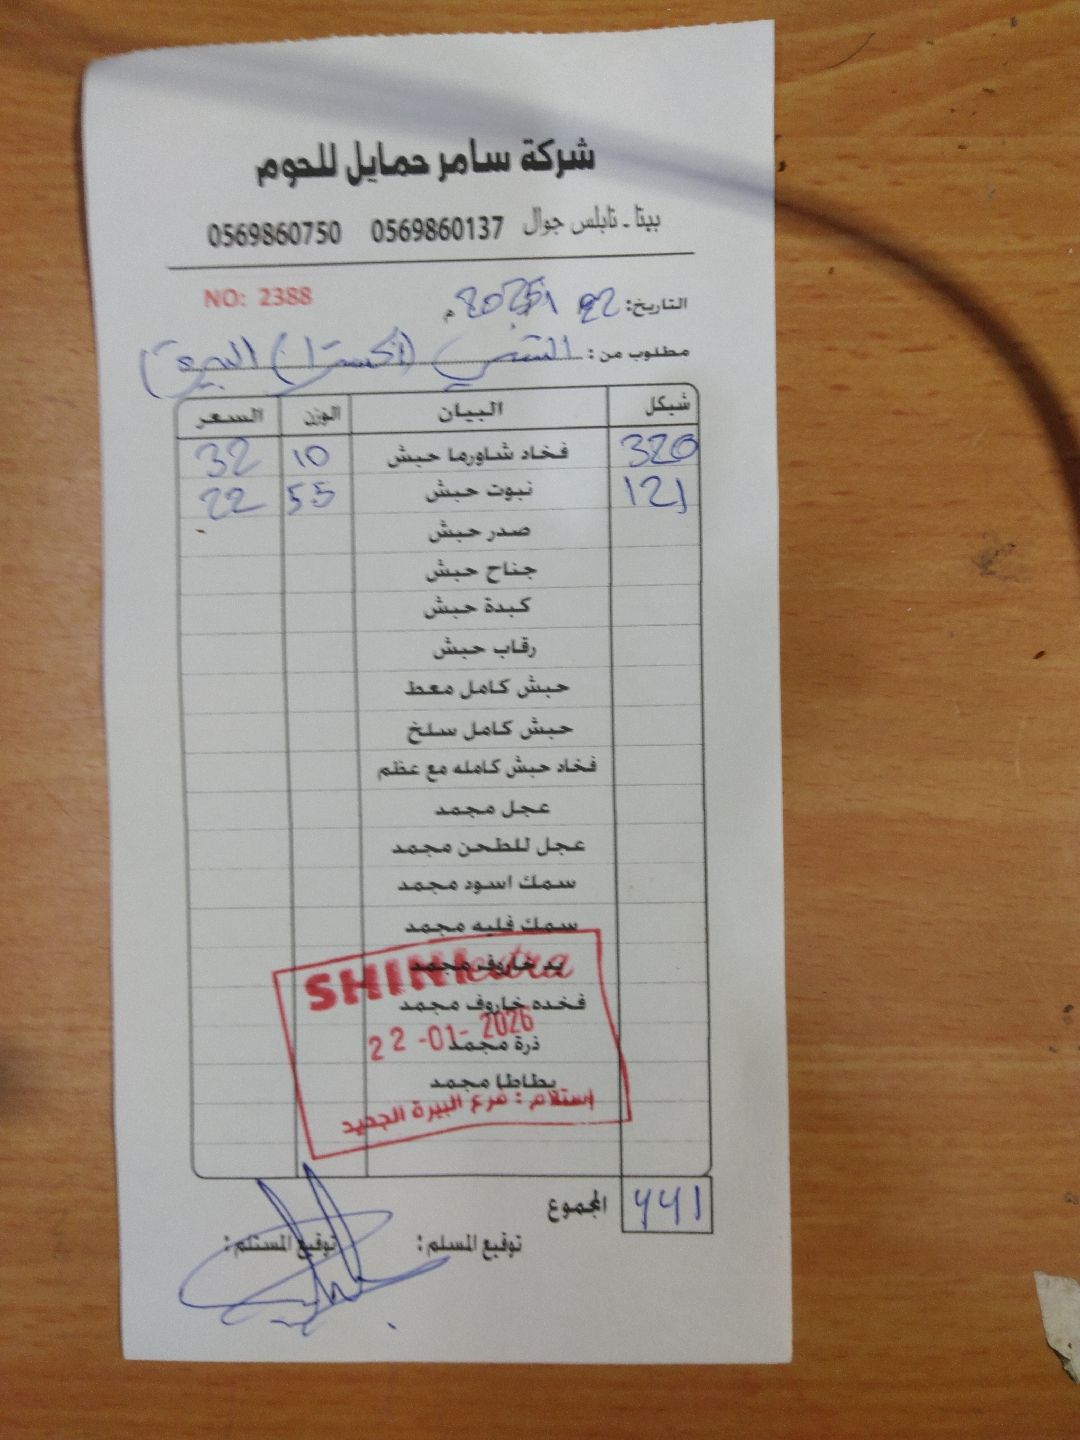 شركة سامر حمايل للحوم
بيتا - نابلس جوال 0569860137 0569860750
NO: 2388
التاريخ: 22 م
مطلوب من: (اكسترا) البيرة
شيكل البيان الوزن السعر
320 فخاد شاورما حبش 10 32
121 نبوت حبش 55 22
صدر حبش
جناح حبش
كبدة حبش
رقاب حبش
حبش كامل معط
حبش كامل سلخ
فخاد حبش كامله مع عظم
عجل مجمد
عجل للطحن مجمد
سمك اسود مجمد
سمك فليه مجمد
يد خاروف مجمد
فخده خاروف مجمد
ذرة مجمد
بطاطا مجمد
SHINI extra
22-01-2026
استلام : فرع البيرة الجديد
المجموع 441
توقيع المسلم: توقيع المستلم: